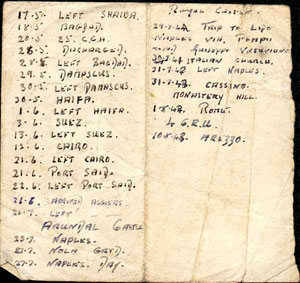 17.5. LEFT SHAIBA.
18.5. BAGDAD.
20.5. 25 C.G.H.
25.5. DISCHARGED.
28.5. LEFT BAGDAD.
29.5. DAMASCUS.
30.5. LEFT DAMASCUS.
30.5. HAIFA.
1.6. LEFT HAIFA.
3.6. SUEZ.
13.6. LEFT SUEZ.
13.6. CAIRO.
21.6. LEFT CAIRO.
21.6. PORT SAID.
22.6. LEFT PORT SAID.
28.6. ARRIVED ALGIERS.
21.7. LEFT
ARUNDAL CASTLE
23.7. NAPLES.
23.7. NOLA
27.7. NAPLES DAY.
Royal Castle.
29.7.43 TRIP TO LIDO
NAPLES VIA. POMPI
GUISEPPE VESUVIUNO
ITALIAN CHURCH.
31.7.43 LEFT NAPLES.
31.7.43 CASSINO.
MONASTERY HILL.
1.8.43. ROME.
4 G.R.U.
10.8.43. AREZZO.